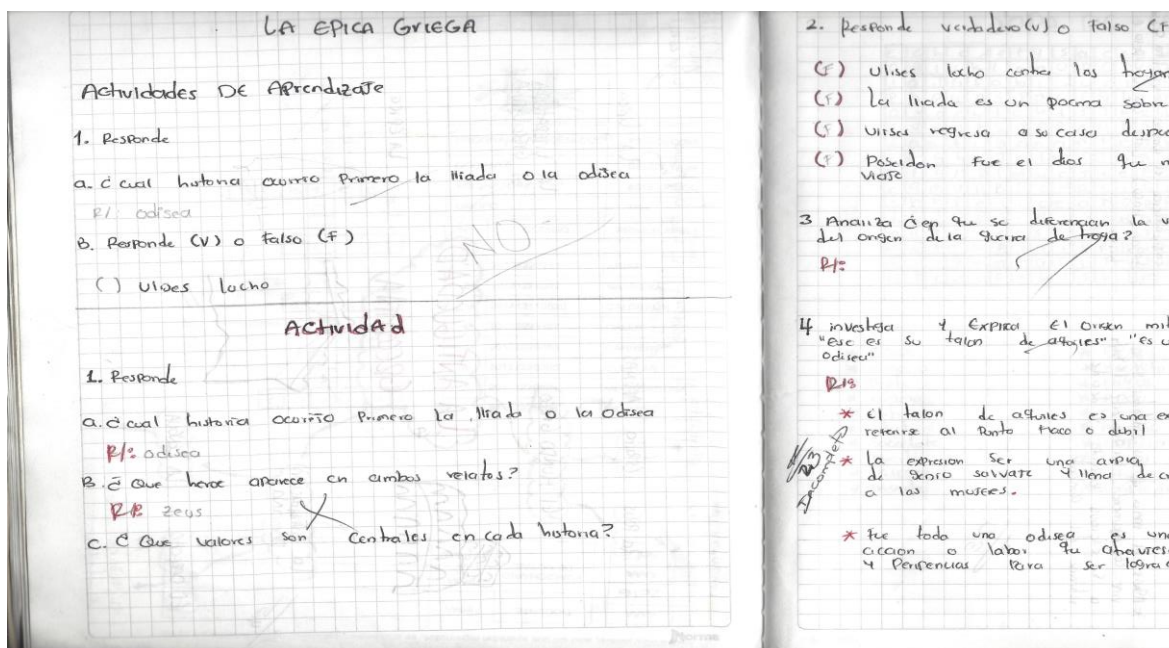 LA EPICA GrIEGA
Actividades DE APrendizaje
1. Responde
a. ¿ cual historia ocurrio Primero la Iliada o la odisea
R/: odisea
B. Responde (V) o falso (F)
NO
( ) Ulises lucho
Actividad
1. Responde
a. ¿ cual historia ocurrio Primero La Iliada o la odisea
R/: odisea
B. ¿ Que heroe aparece en ambos relatos?
R/: zeus
C. ¿ Que valores son Centrales en cada historia?
Norma
2. Responde verdadero (v) o falso (F
(F) Ulises lucho contra los troyan
(F) La Iliada es un poema sobre
(F) Ulises regresa a su casa despu
(F) Poseidon fue el dios que
viaje
3 Analiza ¿en que se diferencian la v
del origen de la guerra de troya?
R/:
4 investiga y Explica El origen mit
"ese es su talon de aquiles" "es u
Odisea"
R/:
* El talon de aquiles es una ex
referirse al Punto flaco o debil
2.3
Incompleto
* La expresion Ser una arpia
de genio salvaje y llena de
a las mujeres.
* fue toda una odisea es una
accion o labor que
y Peripencias Para ser logra